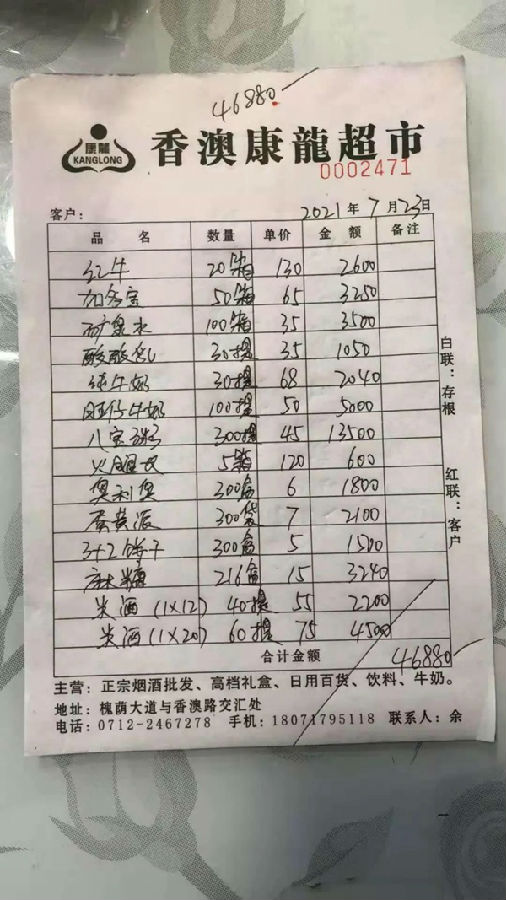 46880
康龍
KANGLONG
香澳康龍超市
0002471
客户： 2021年7月23日
品名 数量 单价 金额 备注
红牛 20箱 130 2600
加多宝 50箱 65 3250
矿泉水 100箱 35 3500
酸酸乳 30提 35 1050
纯牛奶 30提 68 2040
旺仔牛奶 100提 50 5000
八宝粥 300提 45 13500
火腿长 5箱 120 600
奥利奥 300盒 6 1800
蛋黄派 300袋 7 2100
3+2饼干 300盒 5 1500
麻糖 216盒 15 3240
柒酒(1×12) 40提 55 2200
柒酒(1×20) 60提 75 4500
合计金额 46880
白联：存根
红联：客户
主营：正宗烟酒批发、高档礼盒、日用百货、饮料、牛奶。
地址：槐荫大道与香澳路交汇处
电话：0712-2467278 手机：18071795118 联系人：余